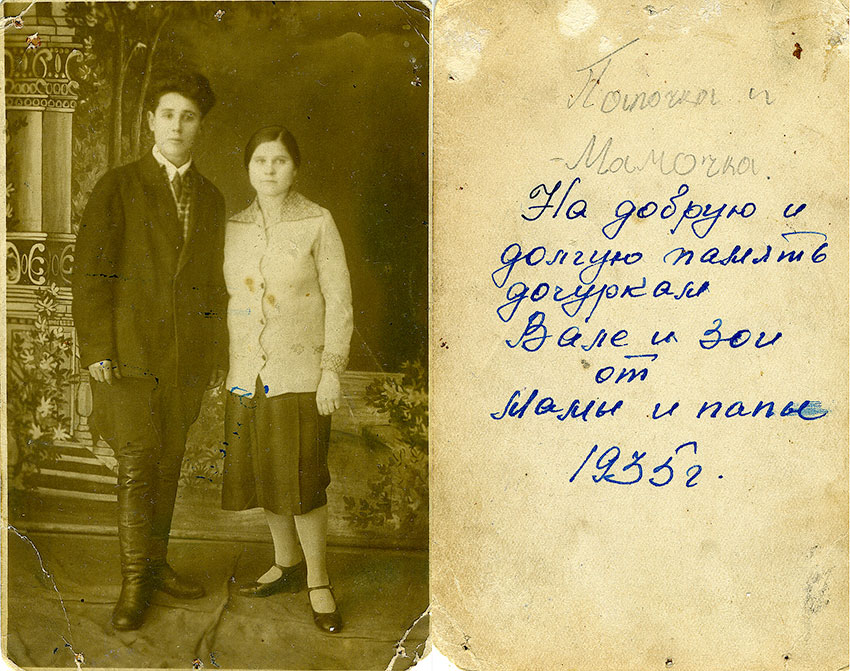 Папочка и
Мамочка
На добрую и
долгую память
дочуркам
Вале и Зои
от
Мамы и папы
1935 г.